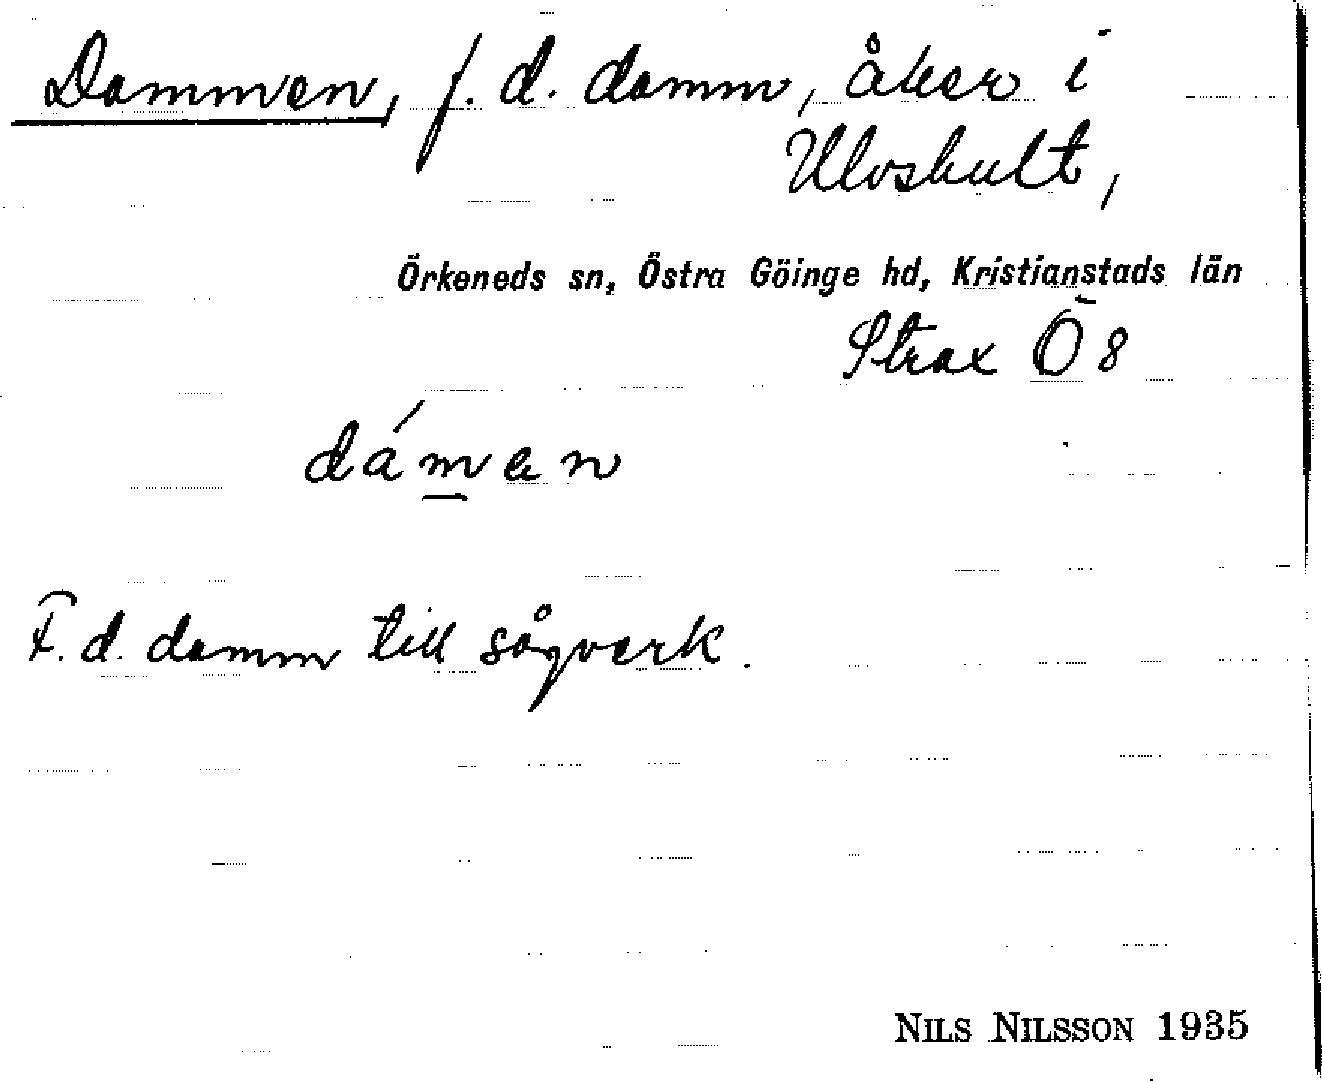 Dammen, f. d. damm, åker i
Ulvshult,
Örkeneds sn, Östra Göinge hd, Kristianstads län
Strax Ö 8
dámen
F. d. damm till sågverk.
NILS NILSSON 1935